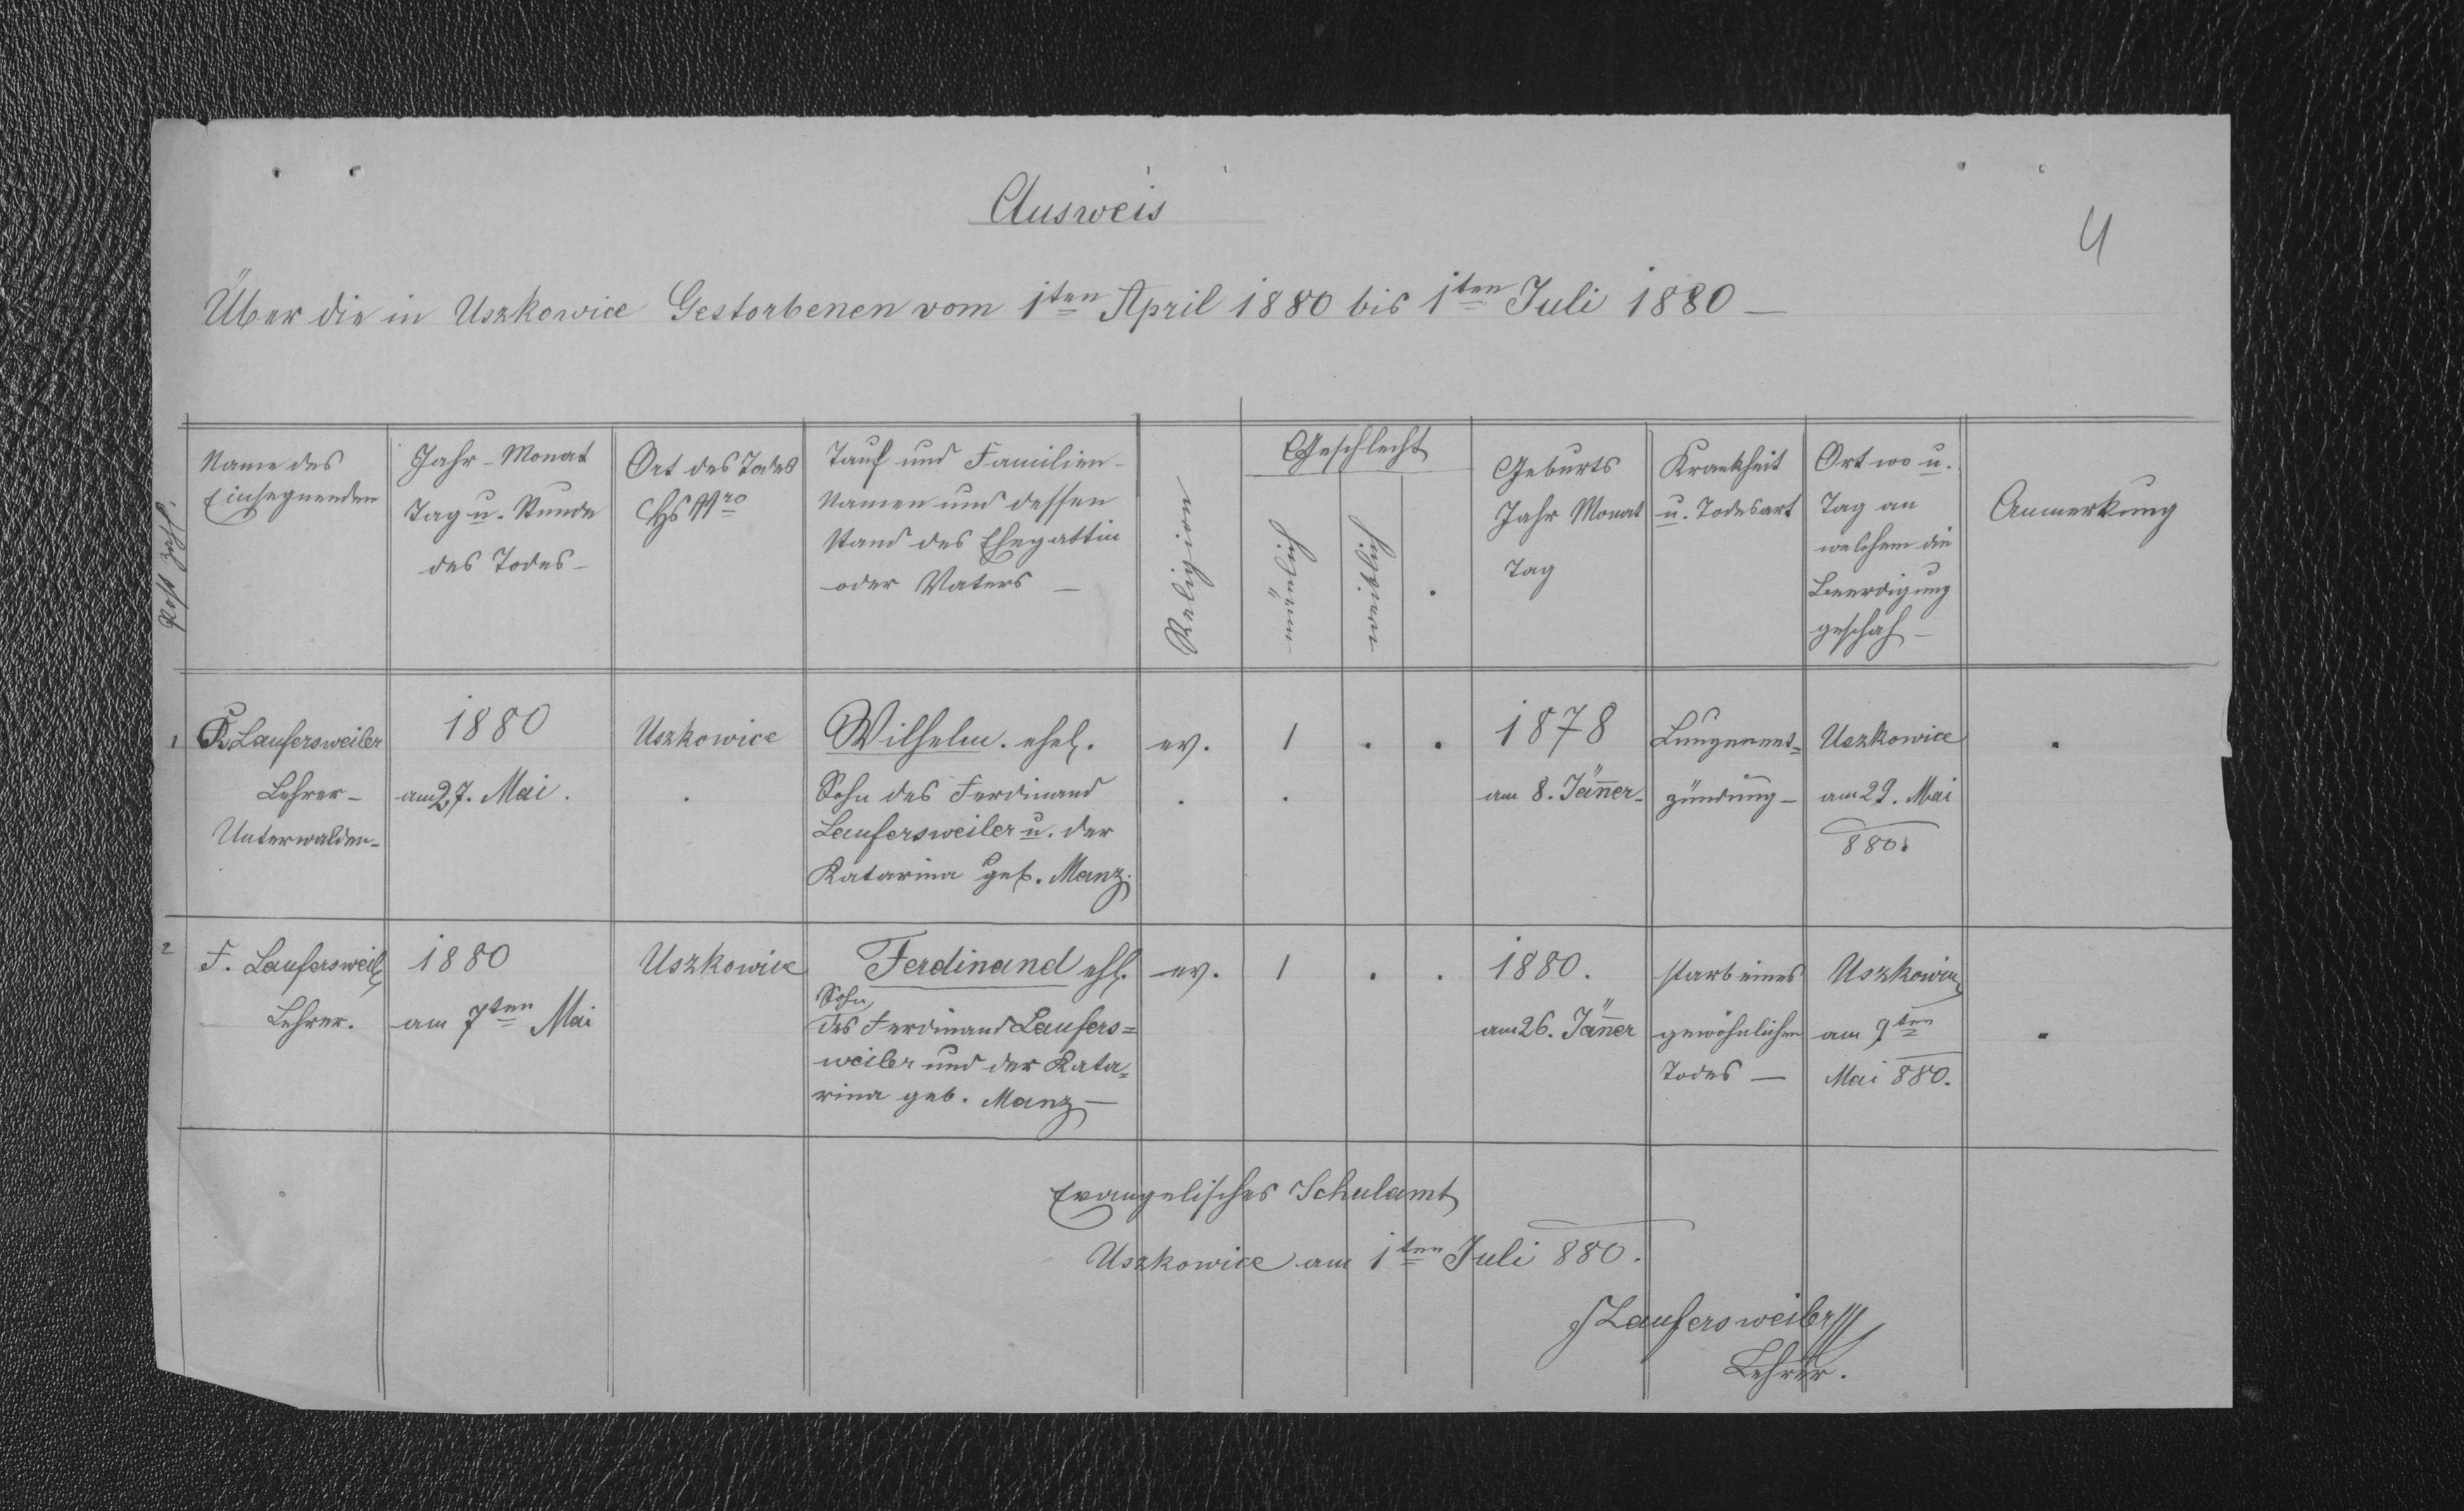 Ausweis
4
Über die in Uszkowice Gestorbenen vom 1ten April 1880 bis 1ten Juli 1880 —
Post Zahl.
Name des
Einsegnenden
Jahr - Monat
Tag u. Stunde
des Todes -
Ort des Todes
Hs Nro
Tauf und Familien-
Namen und dessen
Stand des Ehegattin
oder Vaters —
Religion
Geschlecht
männlich
weiblich
Geburts
Jahr Monat
Tag
Krankheit
u. Todesart
Ort wo u.
Tag an
welchem die
Beerdigung
geschah -
Anmerkung
1
Laufersweiler
Lehrer -
Unterwalden -
1880
am 27. Mai.
Uszkowice
Wilhelm. ehel.
Sohn des Ferdinand
Laufersweiler u. der
Katarina geb. Manz.
ev.
1
1878
am 8. Jänner -
Lungenent=
zündung -
Uszkowice
am 29. Mai
880.
2
F. Laufersweil
Lehrer.
1880
am 7ten Mai
Uszkowice
Ferdinand ehl.
Sohn
des Ferdinand Laufers=
weiler und der Kata=
rina geb. Manz —
ev.
1
1880.
am 26. Jänner
starb eines
gewöhnlichen
Todes —
Uszkowice
am 9ten
Mai 880.
Evangelisches Schulamt
Uszkowice am 1ten Juli 880.
FLaufersweiler
Lehrer.